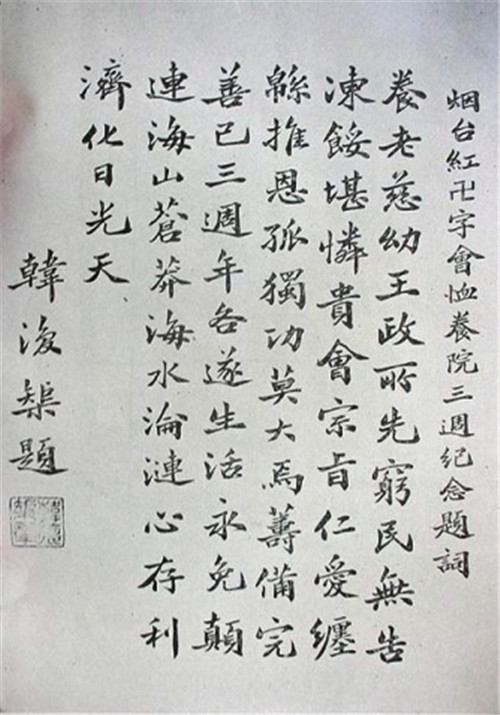 烟台紅卍字會恤養院三週紀念題詞
養老慈幼王政所先窮民無告
凍餒堪憐貴會宗旨仁愛纏
緜推恩孤獨功莫大焉籌備完
善已三週年各遂生活永免顛
連海山蒼莽海水淪漣心存利
濟化日光天
韓復榘題